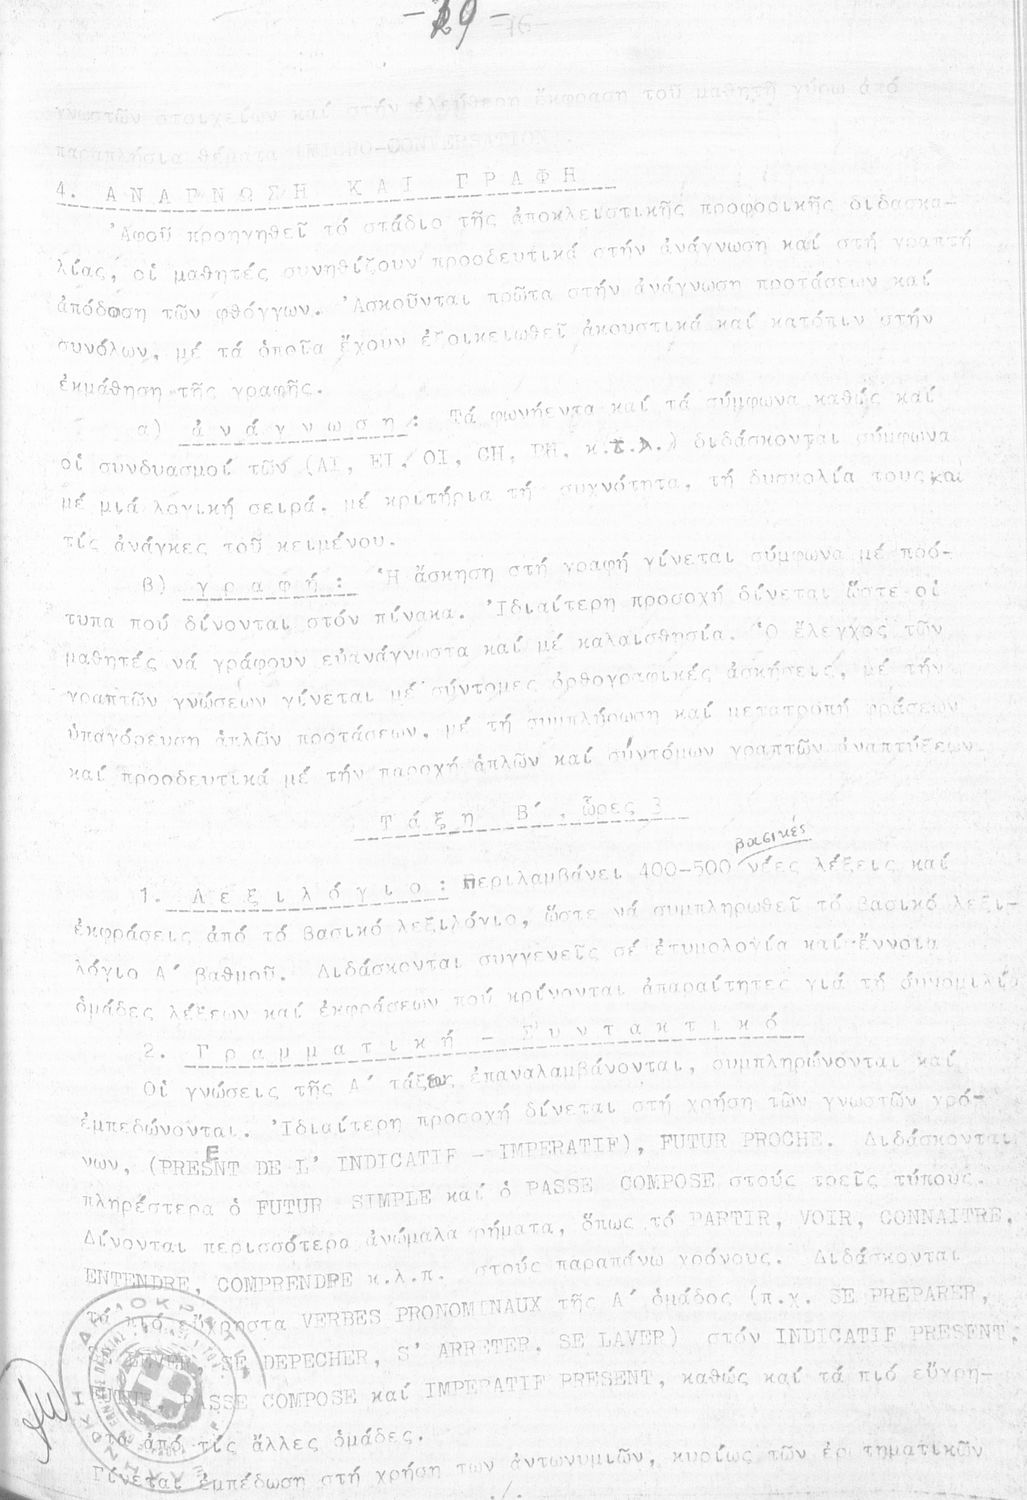 -29-
-16-
γνωστῶν στοιχείων καί στήν ἐλεύθερη ἔκφραση τοῦ μαθητῆ γύρω ἀπό
παραπλήσια θέματα (MICRO-CONVERSATION).
4. ΑΝΑΓΝΩΣΗ ΚΑΙ ΓΡΑΦΗ
Ἀφοῦ προηγηθεῖ τό στάδιο τῆς ἀποκλειστικῆς προφορικῆς διδασκα-
λίας, οἱ μαθητές συνηθίζουν προοδευτικά στήν ἀνάγνωση καί στή γραπτή
ἀπόδοση τῶν φθόγγων. Ἀσκοῦνται πρῶτα στήν ἀνάγνωση προτάσεων καί
συνόλων, μέ τά ὁποῖα ἔχουν ἐξοικειωθεῖ ἀκουστικά καί κατόπιν στήν
ἐκμάθηση τῆς γραφῆς.
α) ἀνάγνωση: Τά φωνήεντα καί τά σύμφωνα καθώς καί
οἱ συνδυασμοί τῶν (AI, EI, OI, CH, PH, κ.τ.λ.) διδάσκονται σύμφωνα
μέ μιά λογική σειρά, μέ κριτήρια τή συχνότητα, τή δυσκολία τους καί
τίς ἀνάγκες τοῦ κειμένου.
β) γραφή: Ἡ ἄσκηση στή γραφή γίνεται σύμφωνα μέ πρό-
τυπα πού δίνονται στόν πίνακα. Ἰδιαίτερη προσοχή δίνεται ὥστε οἱ
μαθητές νά γράφουν εὐανάγνωστα καί μέ καλαισθησία. Ὁ ἔλεγχος τῶν
γραπτῶν γνώσεων γίνεται μέ σύντομες ὀρθογραφικές ἀσκήσεις, μέ τήν
ὑπαγόρευση ἁπλῶν προτάσεων, μέ τή συμπλήρωση καί μετατροπή φράσεων
καί προοδευτικά μέ τήν παροχή ἁπλῶν καί σύντομων γραπτῶν ἀναπτύξεων
Τάξη Β΄, ὧρες 3
βασικές
1. Λεξιλόγιο: Περιλαμβάνει 400-500 νέες λέξεις καί
ἐκφράσεις ἀπό τό βασικό λεξιλόγιο, ὥστε νά συμπληρωθεῖ τό βασικό λεξι-
λόγιο Α΄ βαθμοῦ. Διδάσκονται συγγενεῖς σέ ἐτυμολογία καί ἔννοια
ὁμάδες λέξεων καί ἐκφράσεων πού κρίνονται ἀπαραίτητες γιά τή συνομιλία
2. Γραμματική - Συντακτικό
Οἱ γνώσεις τῆς Α΄ τάξεως ἐπαναλαμβάνονται, συμπληρώνονται καί
ἐμπεδώνονται. Ἰδιαίτερη προσοχή δίνεται στή χρήση τῶν γνωστῶν χρό-
νων, (PRESENT DE L' INDICATIF - IMPERATIF), FUTUR PROCHE. Διδάσκονται
πληρέστερα ὁ FUTUR SIMPLE καί ὁ PASSE COMPOSE στούς τρεῖς τύπους.
Δίνονται περισσότερα ἀνώμαλα ρήματα, ὅπως τό PARTIR, VOIR, CONNAITRE,
ENTENDRE, COMPRENDRE κ.λ.π. στούς παραπάνω χρόνους. Διδάσκονται
τά πιό εὔχρηστα VERBES PRONOMINAUX τῆς Α΄ ὁμάδος (π.χ. SE PREPARER,
LEVER, SE DEPECHER, S' ARRETER, SE LAVER) στόν INDICATIF PRESENT,
FUTUR, PASSE COMPOSE καί IMPERATIF PRESENT, καθώς καί τά πιό εὔχρη-
στα ἀπό τίς ἄλλες ὁμάδες.
Γίνεται ἐμπέδωση στή χρήση των ἀντωνυμιῶν, κυρίως τῶν ἐρωτηματικῶν
./.